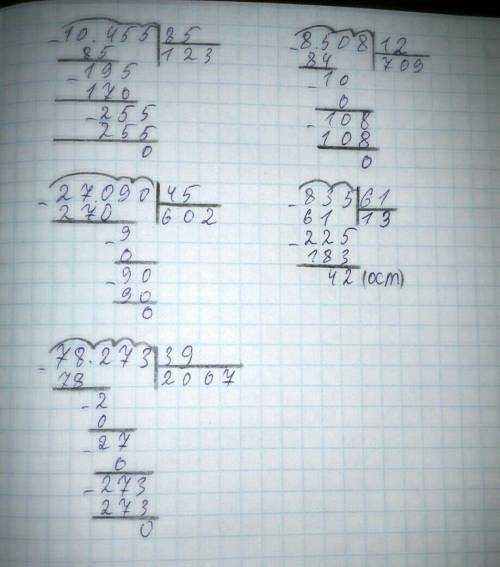 10.455 85
85 123
195
170
255
255
0
8.508 12
84 709
10
0
108
108
0
27.090 45
270 602
9
0
90
90
0
835 61
61 13
225
183
42 (ост)
78.273 39
78 2007
2
0
27
0
273
273
0